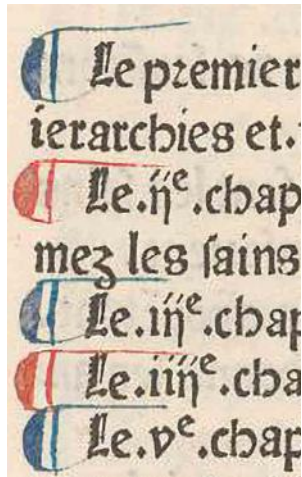 ¶ Le premier
ierarchies et.
¶ Le.ijᵉ.chap
mez les sains
¶ Le.iijᵉ.chap
¶ Le.iiijᵉ.cha
¶ Le.vᵉ.chap